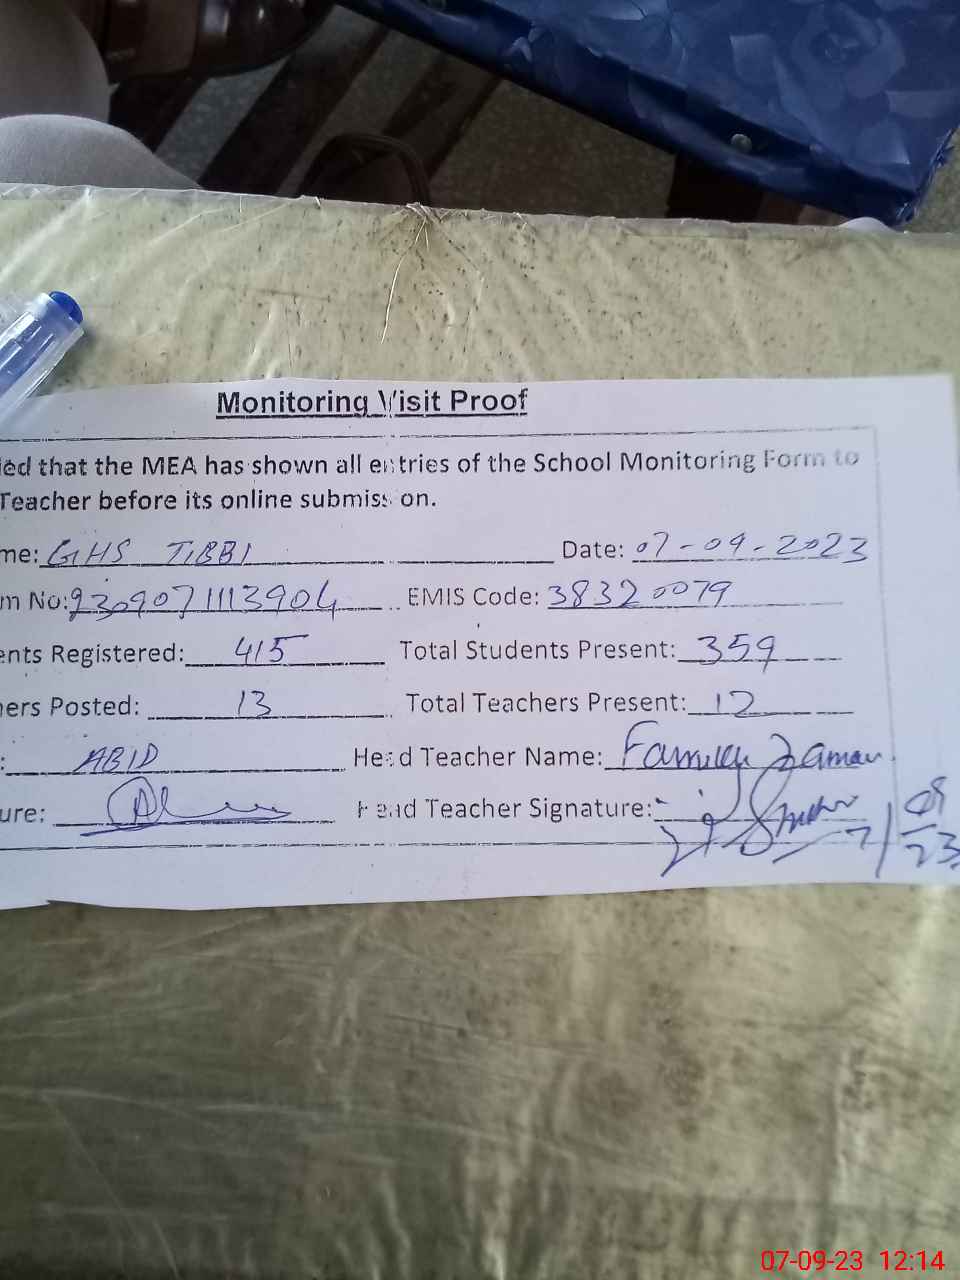 Monitoring Visit Proof
ied that the MEA has shown all entries of the School Monitoring Form to
Teacher before its online submission.
me: GHS TIBBI Date: 07-09-2023
m No: 9309071113904 EMIS Code: 38320079
ents Registered: 415 Total Students Present: 359
ers Posted: 13 Total Teachers Present: 12
: ABID Head Teacher Name: Zaman
ure: Head Teacher Signature:
7/09/23
07-09-23 12:14